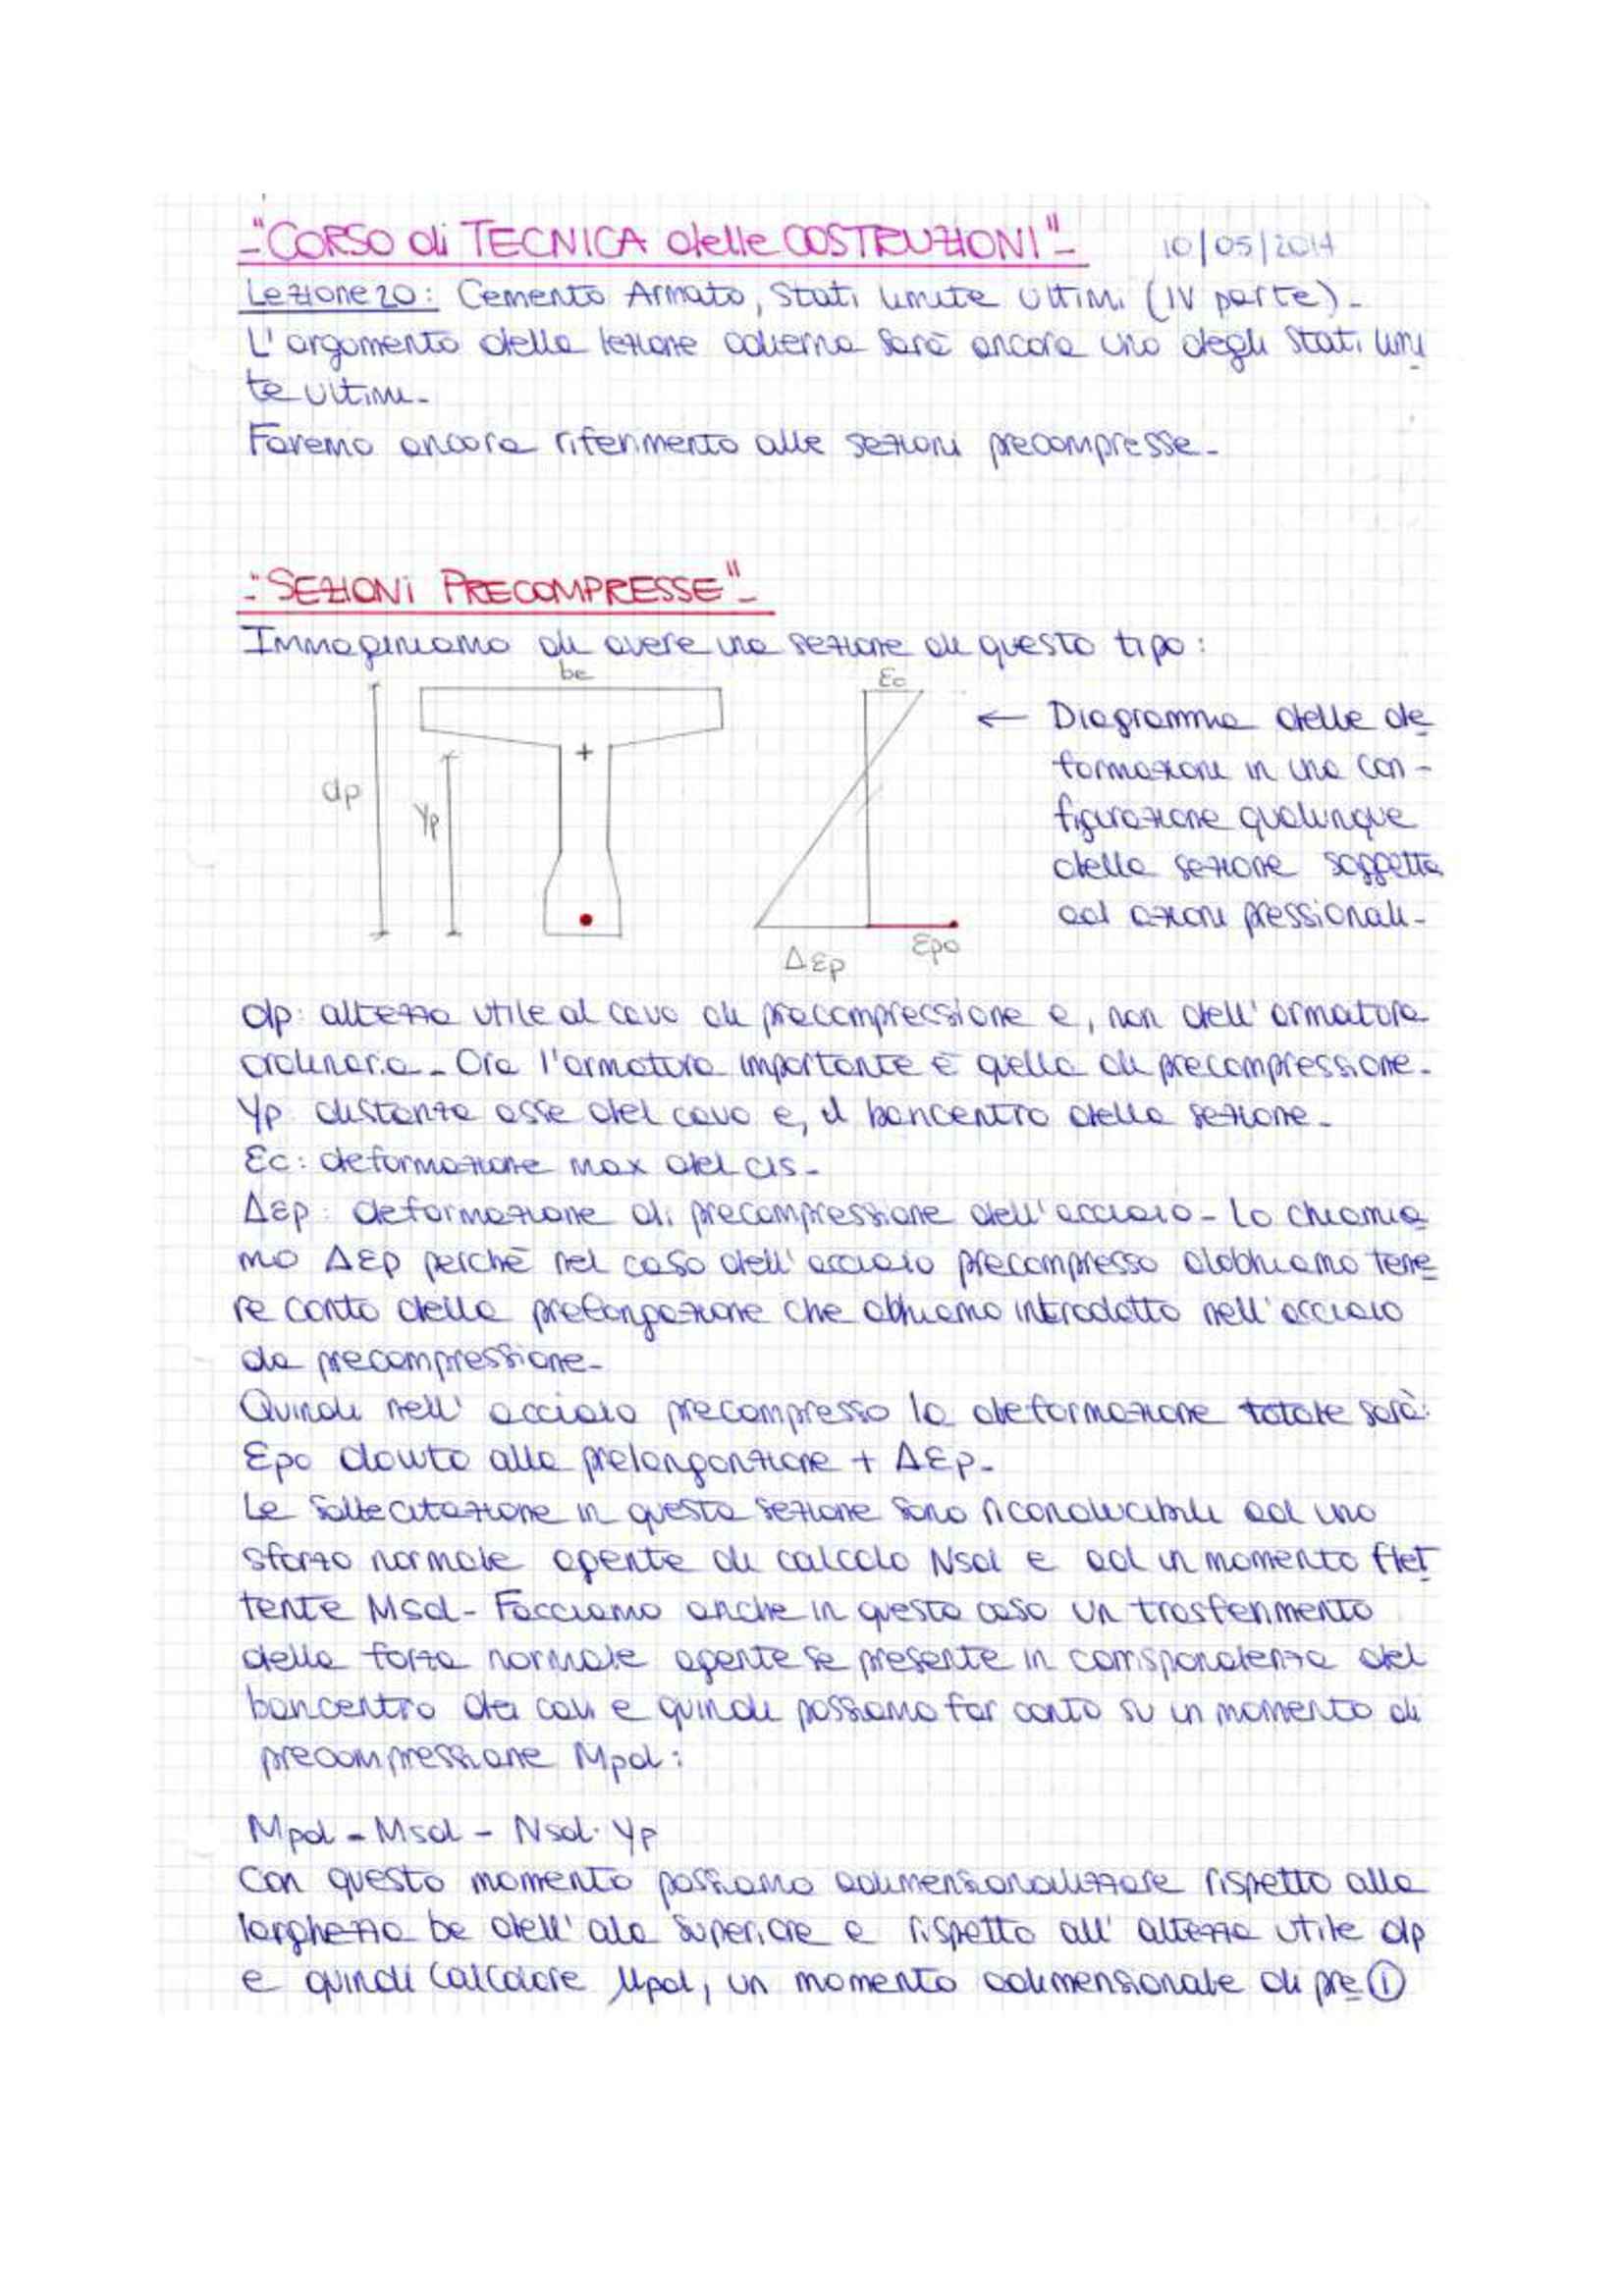 -"CORSO di TECNICA delle COSTRUZIONI"- 10/05/2014
Lezione 20: Cemento Armato, Stati limite Ultimi (IV parte)-
L'argomento della lezione odierna sarà ancora uno degli Stati limi
te ultimi-
Faremo ancora riferimento alle sezioni precompresse-
-"SEZIONI PRECOMPRESSE"-
Immaginiamo di avere una sezione di questo tipo:
be
εc
dp
yp
Δεp
εpo
← Diagramma delle de
formazioni in una con-
figurazione qualunque
della sezione soggetta
ad azioni pressionali-
dp: altezza utile al cavo di precompressione e, non dell'armatura
ordinaria- Ora l'armatura importante è quella di precompressione-
Yp: distanza asse del cavo e, il baricentro della sezione-
εc: deformazione max del cls-
Δεp: deformazione di precompressione dell'acciaio- Lo chiamia
mo Δεp perchè nel caso dell'acciaio precompresso dobbiamo tene
re conto della prelongazione che abbiamo introdotto nell'acciaio
da precompressione-
Quindi nell' acciaio precompresso la deformazione totale sarà:
εpo dovuto alla prelongonzione + Δεp-
Le Sollecitazione in questa sezione sono riconducibili ad uno
sforzo normale agente di calcolo Nsd e ad un momento flet
tente Msd- Facciamo anche in questo caso un trasferimento
della forza normale agente se presente in corrispondenza del
baricentro dei cavi e quindi possiamo far conto su un momento di
precompressione Mpd:
Mpd = Msd - Nsd· yp
Con questo momento possiamo adimensionalizzare rispetto alla
larghezza be dell'ala superiore e rispetto all' altezza utile dp
e quindi calcolare μpd, un momento adimensionale di pre ①